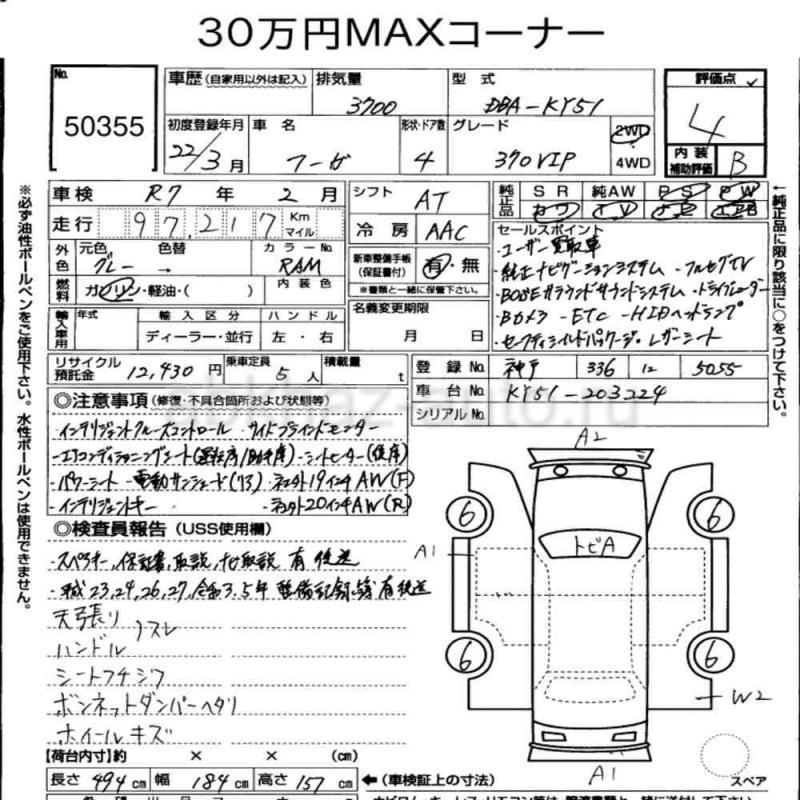 30万円MAXコーナー
No.
50355
車歴(自家用以外は記入)
排気量
3700
型式
DBA-KY51
評価点
4
初度登録年月
22/3月
車名
フーガ
形状・ドア数
4
グレード
370VIP
2WD
4WD
内装
補助評価
B
車検 R7年2月
シフト AT
純正品
SR 純AW PS PW
走行 97,217 Km
マイル
冷房 AAC
セールスポイント
・ユーザー買取車
・純正ナビゲーションシステム ・フルセグTV
・BOSEサラウンドサウンドシステム ・ドライブレコーダー
・Bカメラ -ETC -HIDヘッドランプ
・セーフティシールドパッケージ・レザーシート
外色
元色
グレー
色替
→
カラーNo.
RAM
燃料
ガソリン・軽油・( )
内装色
新車整備手帳
(保証書付)
有・無
※書類と一緒に保管して下さい。
輸入車用
年式
輸入区分
ディーラー・並行
ハンドル
左・右
名義変更期限
月 日
リサイクル
預託金
12,430円
乗車定員
5人
積載量
t
登録No. 神戸 336 12 5055
車台No. KY51-203224
シリアルNo.
◎注意事項(修復・不具合箇所および状態等)
・インテリジェントクルーズコントロール ・サイドブラインドモニター
・エアコンディショニングシート(運転席/助手席)・シートヒーター(後席)
・パワーシート ・電動サンシェード(リヤ) 19インチAW(F)
・インテリジェントキー 20インチAW(R)
◎検査員報告(USS使用欄)
・スペアキー,保証書,取説,ナビ取説 有 後送
・平成23,24,26,27,令和3.5年 整備記録簿有後送
天張り
ハンドル
スレ
シートフチジワ
ボンネットダンパーヘタリ
ホイールキズ
A2
6
6
トビA
A1
6
6
W2
A1
スペア
【荷台内寸】約 × × (cm)
長さ 494cm 幅 184cm 高さ 157cm
←(車検証上の寸法)
※必ず油性ボールペンをご使用下さい。水性ボールペンは使用できません。
←純正品に限り該当に○をつけて下さい。
abkhaz-auto.ru